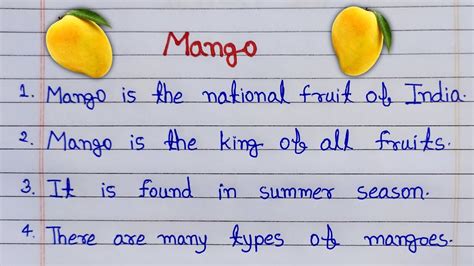 Mango
1. Mango is the national fruit of India.
2. Mango is the king of all fruits.
3. It is found in summer season.
4. There are many types of mangoes.